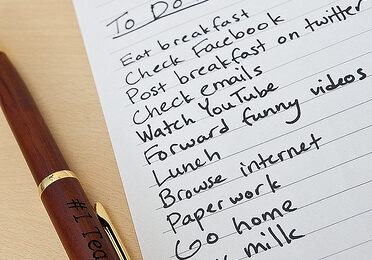 To Do
Eat breakfast
Check Facebook
Post breakfast on twitter
Check emails
Watch YouTube
Forward funny videos
Lunch
Browse internet
Paperwork
Go home
milk
#1 Tea